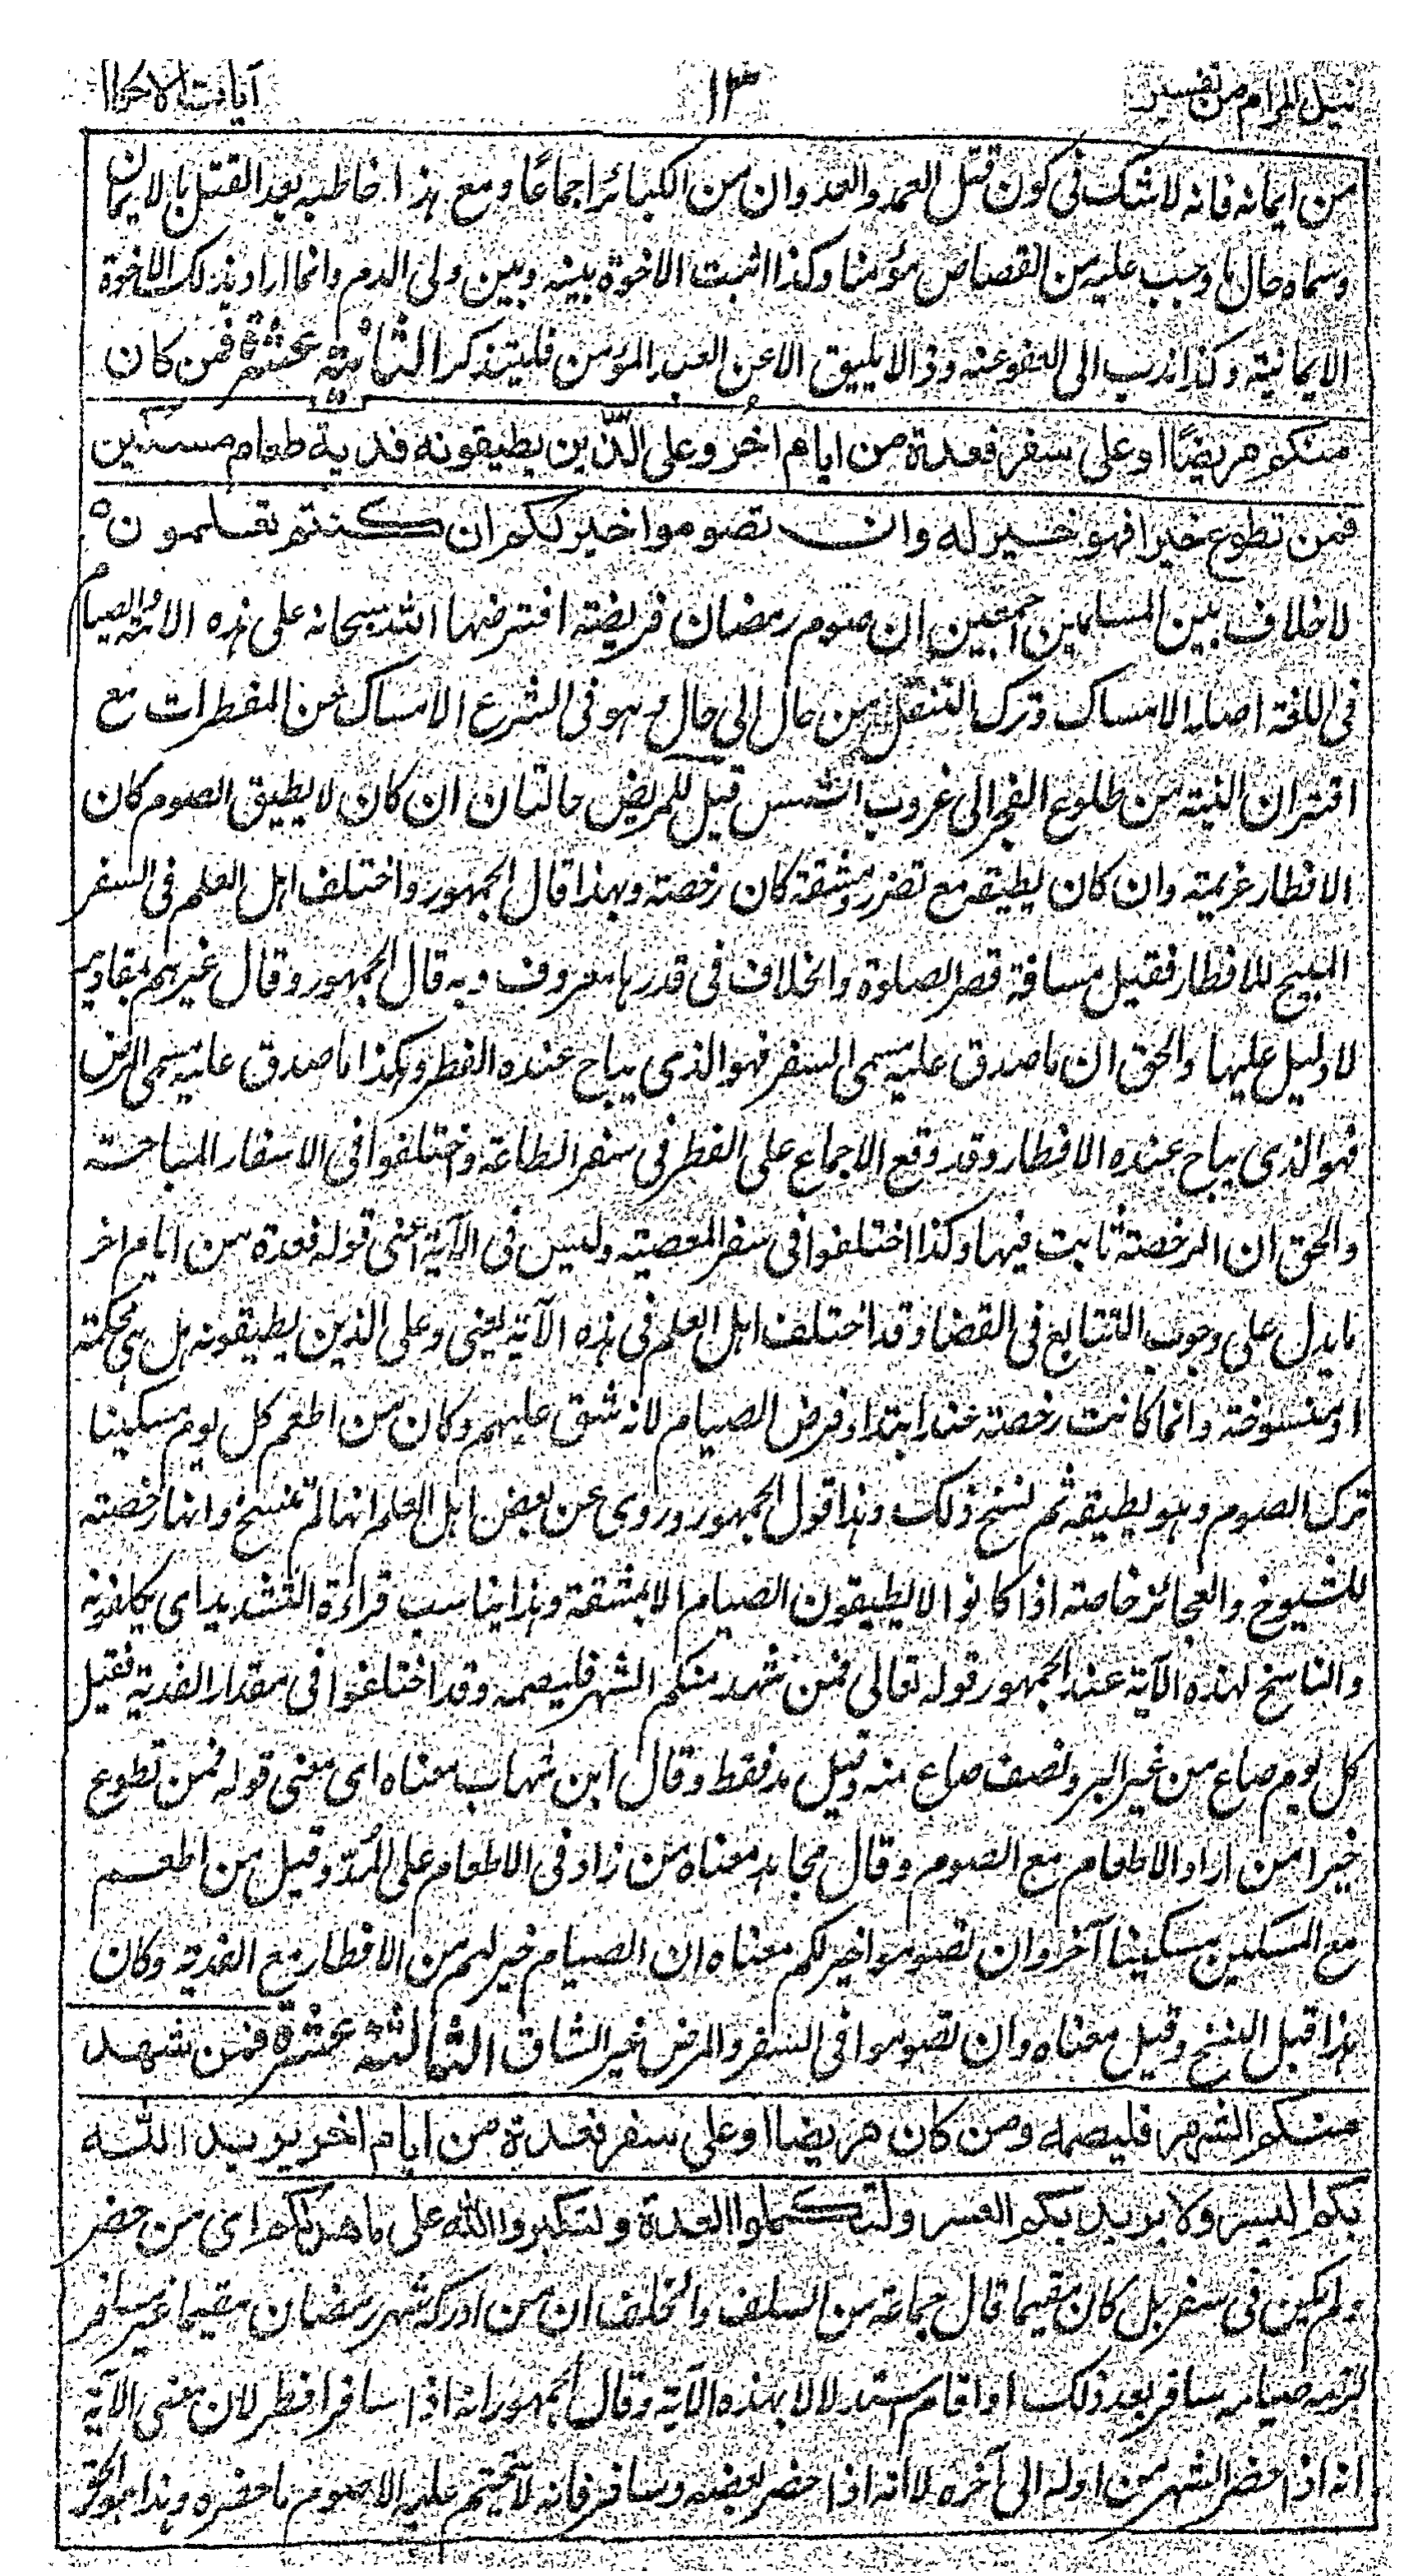 نيل المرام من تفسير
١٣
آيات الاحكا
من ايمانه فانه لا شك فى كون قتل العمد والعدوان من الكبائر اجماعًا ومع هذا خاطبه بعد القتل بالايمان
وسماه حال ما وجب عليه من القصاص مؤمنا وكذا اثبت الاخوة بينه وبين ولى الدم وانما اراد بذلك الاخوة
الايمانية وكذا ندب الى العفو عنه وذا لا يليق الا عن العبد المؤمن فليتذكر الثانية عشرة فمن كان
منكم مريضًا او على سفر فعدة من ايام اخُر وعلى الّذين يطيقونه فدية طعام مسكين
فمن تطوع خيرا فهو خير له وان تصوموا خير لكم ان كنتم تعلمون ه
لا خلاف بين المسلمين اجمعين ان صوم رمضان فريضة افترضها الله سبحانه على هذه الامة والصيام
فى اللغة اصله الامساك وترك التنقل من حال الى حال وهو فى الشرع الامساك عن المفطرات مع
اقتران النية من طلوع الفجر الى غروب الشمس قيل للمريض حالتان ان كان لا يطيق الصوم كان
الافطار عزيمة وان كان يطيقه مع تضرر ومشقة كان رخصة وبهذا قال الجمهور واختلف اهل العلم فى السفر
المبيح للافطار فقيل مسافة قصر الصلوة والخلاف فى قدرها معروف وبه قال الجمهور وقال غيرهم بمقادير
لا دليل عليها والحق ان ما صدق عليه مسمى السفر فهو الذى يباح عنده الفطر وهكذا ما صدق عليه مسمى المرض
فهو الذى يباح عنده الافطار وقد وقع الاجماع على الفطر فى سفر الطاعة واختلفوا فى الاسفار المباحة
والحق ان الرخصة ثابت فيها وكذا اختلفوا فى سفر المعصية وليس فى الآية اعنى قوله فعدة من ايام اخر
ما يدل على وجوب التتابع فى القضا وقد اختلف اهل العلم فى هذه الآية يعنى وعلى الذين يطيقونه هل هى محكمة
او منسوخة وانما كانت رخصة عند ابتداء فرض الصيام لانه شق عليهم وكان من اطعم كل يوم مسكينا
ترك الصوم وهو يطيقه ثم نسخ ذلك وهذا قول الجمهور وروى عن بعض اهل العلم انها لم تنسخ وانها رخصة
للشيوخ والعجائز خاصة اذا كانوا لا يطيقون الصيام الا بمشقة وهذا يناسب قراءة التشديد اى يكلفونه
والناسخ لهذه الآية عند الجمهور قوله تعالى فمن شهد منكم الشهر فليصمه وقد اختلفوا فى مقدار الفدية فقيل
كل يوم صاع من غير البر ونصف صاع منه وقيل مد فقط وقال ابن شهاب معناه اى معنى قوله فمن تطوع
خيرا من اراد الاطعام مع الصوم وقال مجاهد معناه من زاد فى الاطعام على المُدّ وقيل من اطعم
مع المسكين مسكينا آخر وان تصوموا خير لكم معناه ان الصيام خير لهم من الافطار مع الفدية وكان
هذا قبل النسخ وقيل معناه وان تصوموا فى السفر والمرض غير الشاق الثالثة عشرة فمن شهد
منكم الشهر فليصمه ومن كان مريضا او على سفر فعدة من ايام اخر يريد الله
بكم اليسر ولا يريد بكم العسر ولتكملوا العدة ولتكبروا الله على ما هدىكم اى من حضر
ولم يكن فى سفر بل كان مقيما قال جماعة من السلف والخلف ان من ادركه شهر رمضان مقيما غير مسافر
لزمه صيامه سافر بعد ذلك او اقام استدلالا بهذه الآية وقال الجمهور انه اذا سافر افطر لان معنى الآية
انه اذا حضر الشهر من اوله الى آخره لا انه اذا حضر بعضه وسافر فانه لا يتحتم عليه الا صوم ما حضره وهذا هو الحق